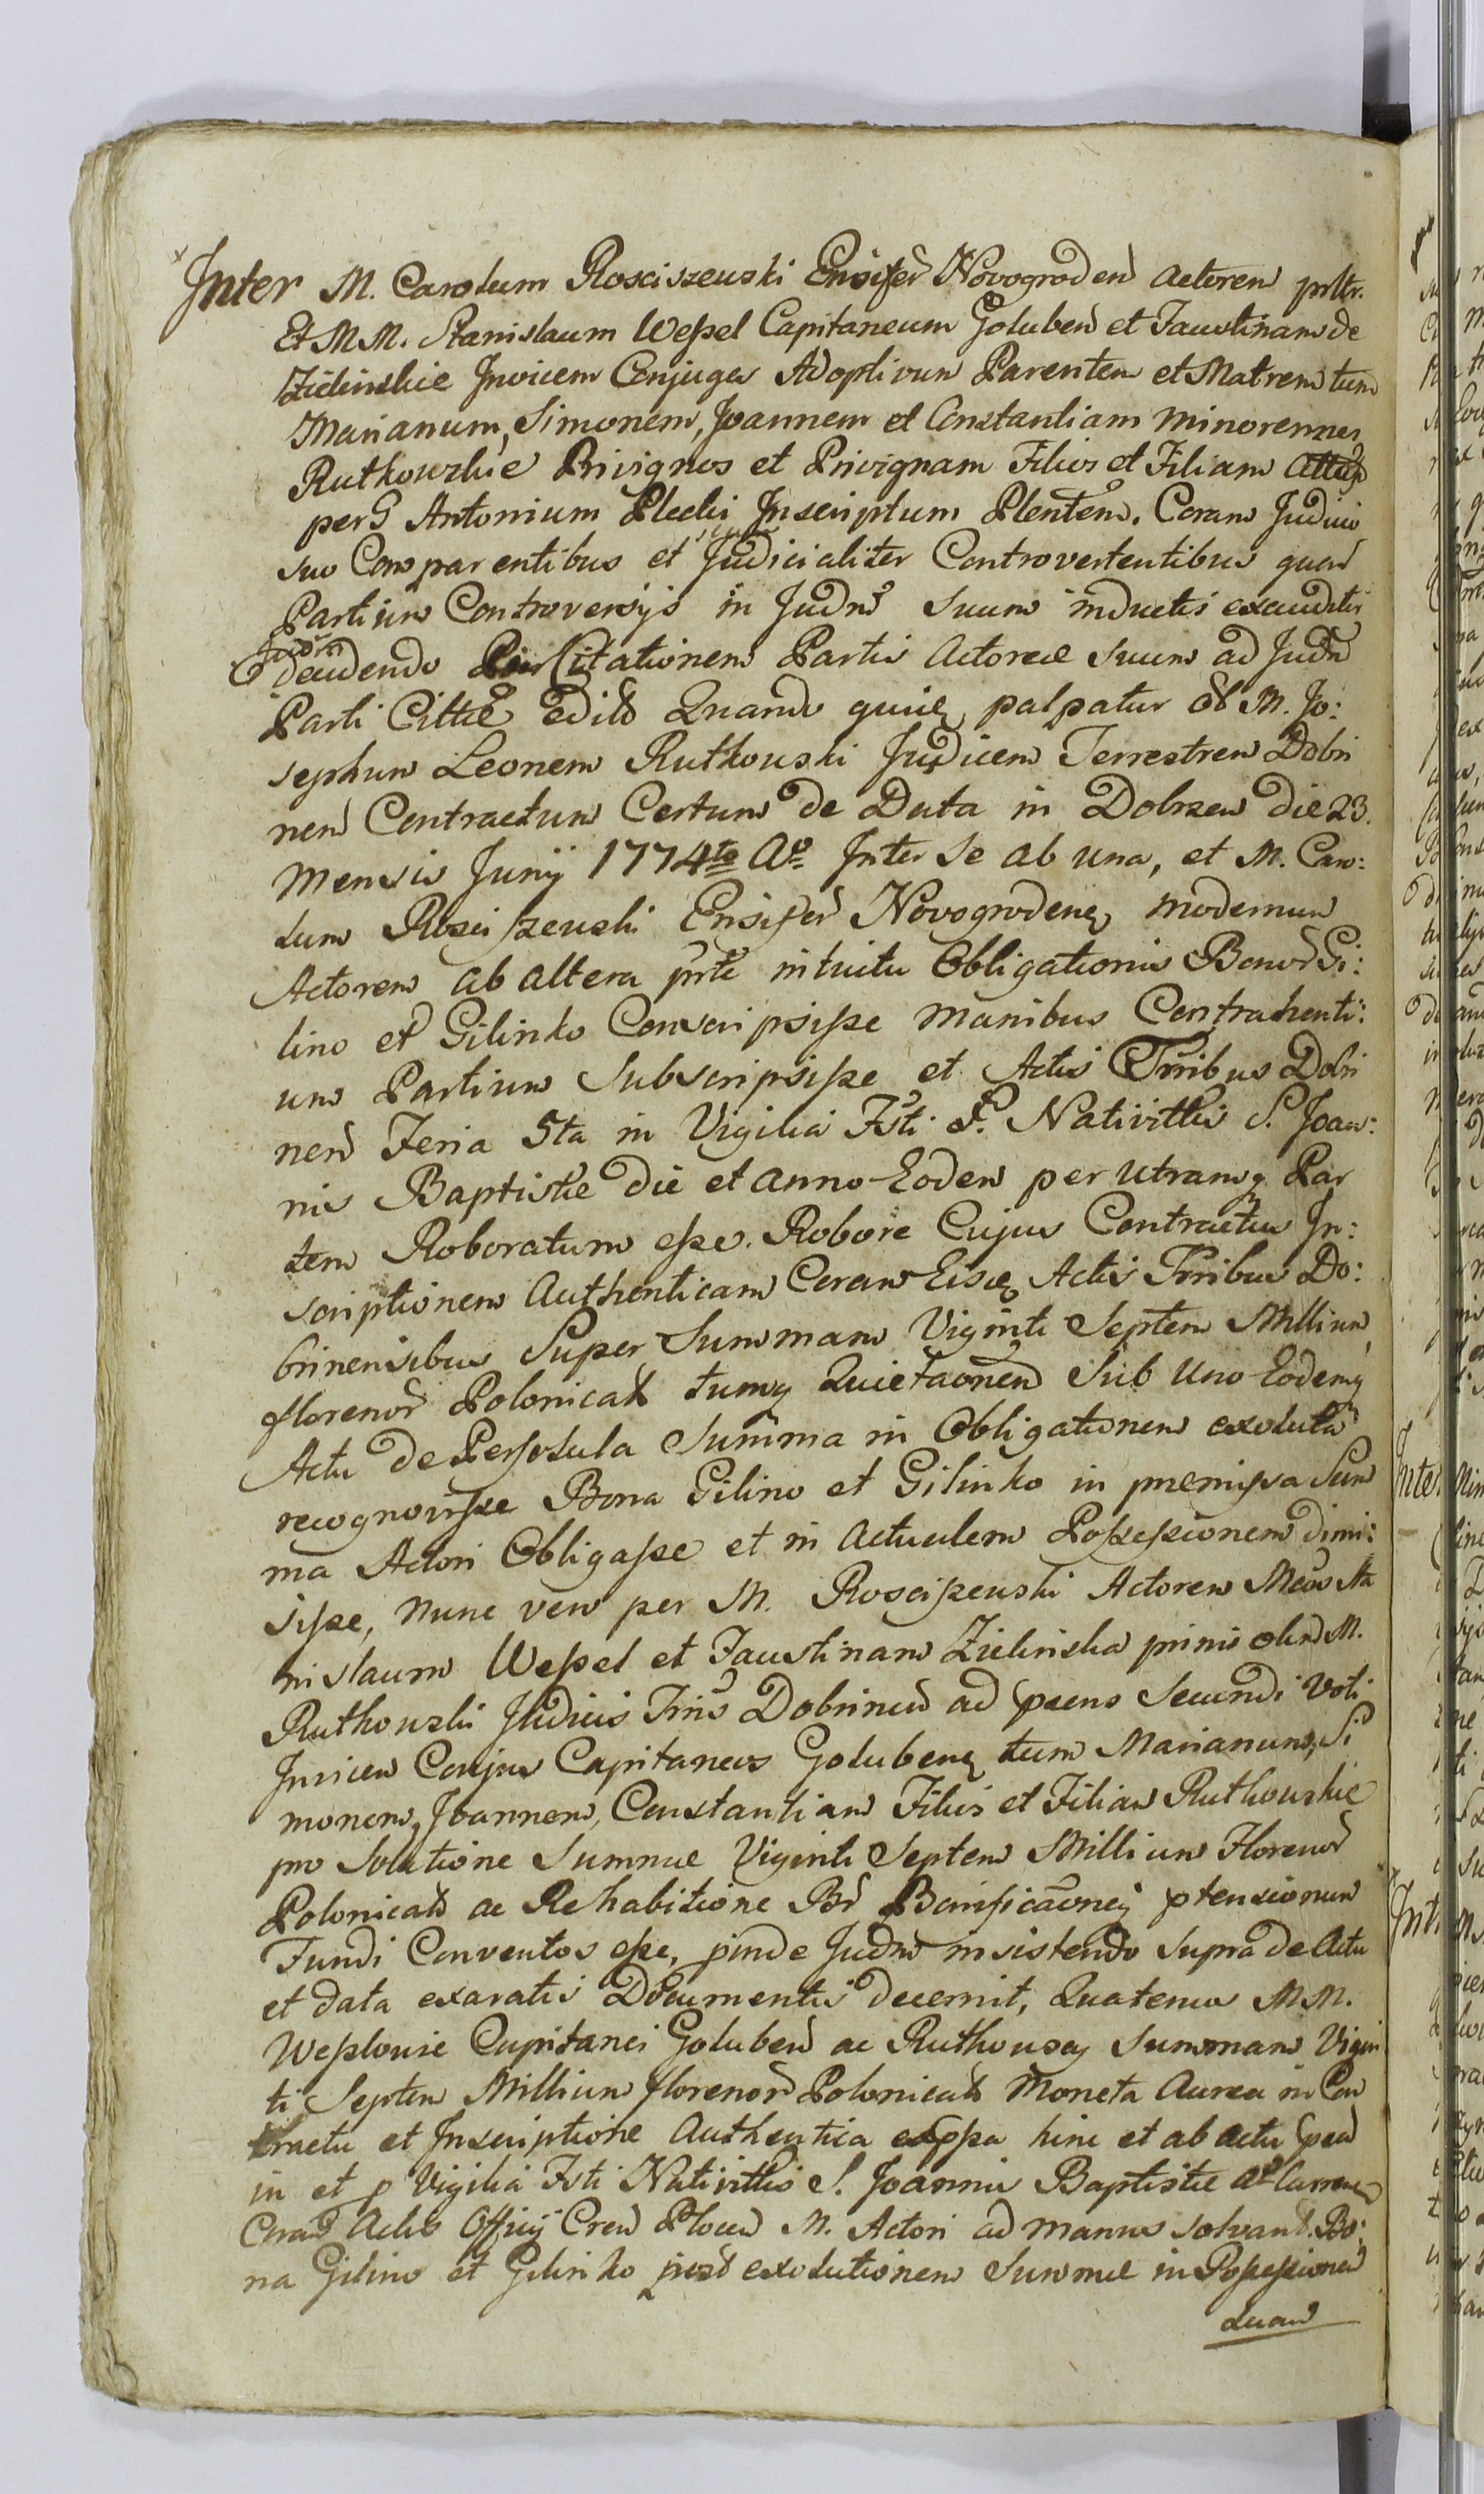 Inter M. Carolum Rosciszewski Ensifer Novogroden Actorem
Et M M. Stanislaum Weßel Capitaneum Goluben et Faustinam de
Zielinskie Invicem Conjuges Adoptivum Parentem et Matrem tum
Marianum, Simonem, Joannem et Constantiam Minorennes
Rutkowskie Privignos et Privignam Filios et Filiam
per G Antonium Plecki Inscriptum Plentem. Coram Judicio
suo Comparentibus et Judicialiter Controvertentibus quar
Partium Controversijs in Judm suum inductis exauditis
deudendo Citationem Partis Actoreæ suum ad Judm
Parti Cittæ edito Quando quide palpatur Ol M. Jo:
sephum Leonem Rutkowski Judicem Terrestrem Dobri
nen Contractum Certum de Data in Dobrzen die 23.
Mensis Junij 1774to Ao Inter Se ab una, et M. Caro:
lum Roscißewski Ensifer Novogroden modernum
Actorem ab altera prte intuitu Obligationis Bonor Gi:
lino et Gilinko Conscripsiße manibus Contrahenti:
um Partium Subscripsiße et Actis Trribus Dobri
nen Feria 5ta in Vigilia Fsti F. Nativittis S. Joan:
nis Baptistæ die et anno Eodem per utramq Par
tem Roboratum eße. Robore Cujus Contractus In:
scriptionem Authenticam Coram Eisd Actis Trribus Do:
brinensibus Super Summam Viginti Septem Millium
florenor Polonical tumq Quietaonem Sub Uno Eodemq
Actu de Persoluta Summa in Obligationem exoluta
recognoviße Bona Gilino et Gilinko in præmißa Sum
ma Actori Obligaße et in Actualem Poßeßionem dimi:
siße, Nunc vero per M. Roscißewski Actorem Mcos Sta
nislaum Weßel et Faustinam Zielinska primi olim M.
Rutkowski Judicis Trris Dobrinen ad præns Secundi Voti
Invicem Conjus Capitaneos Goluben tum Marianum, Si
monem, Joannem, Constantiam Filios et Filiam Rutkowskie
pro Solutione Summæ Viginti Septem Millium Florenor
Polonical ac Rehabitione Br Bonificaonej ptensionum
Fundi Conventos eße, pinde Judm insistendo supra de Actu
et data exaratis Documentis decernit, Quatenus M M.
Weßlowie Capitanei Goluben ac Rutkowscy Summam Vigin
ti Septem Millium florenor Polonical Moneta Aurea in Con
tractu et Inscriptione Authentica exppsa hinc et ab actu
in et p Vigilia Fsti Nativittis S. Joannis Baptistæ Ao Curren
Coram Actis Officij Cren Plocen M. Actori ad manus solvant. Bo:
na Gilino et Gilinko post exolutionem Summæ in Poßeßionem
quam